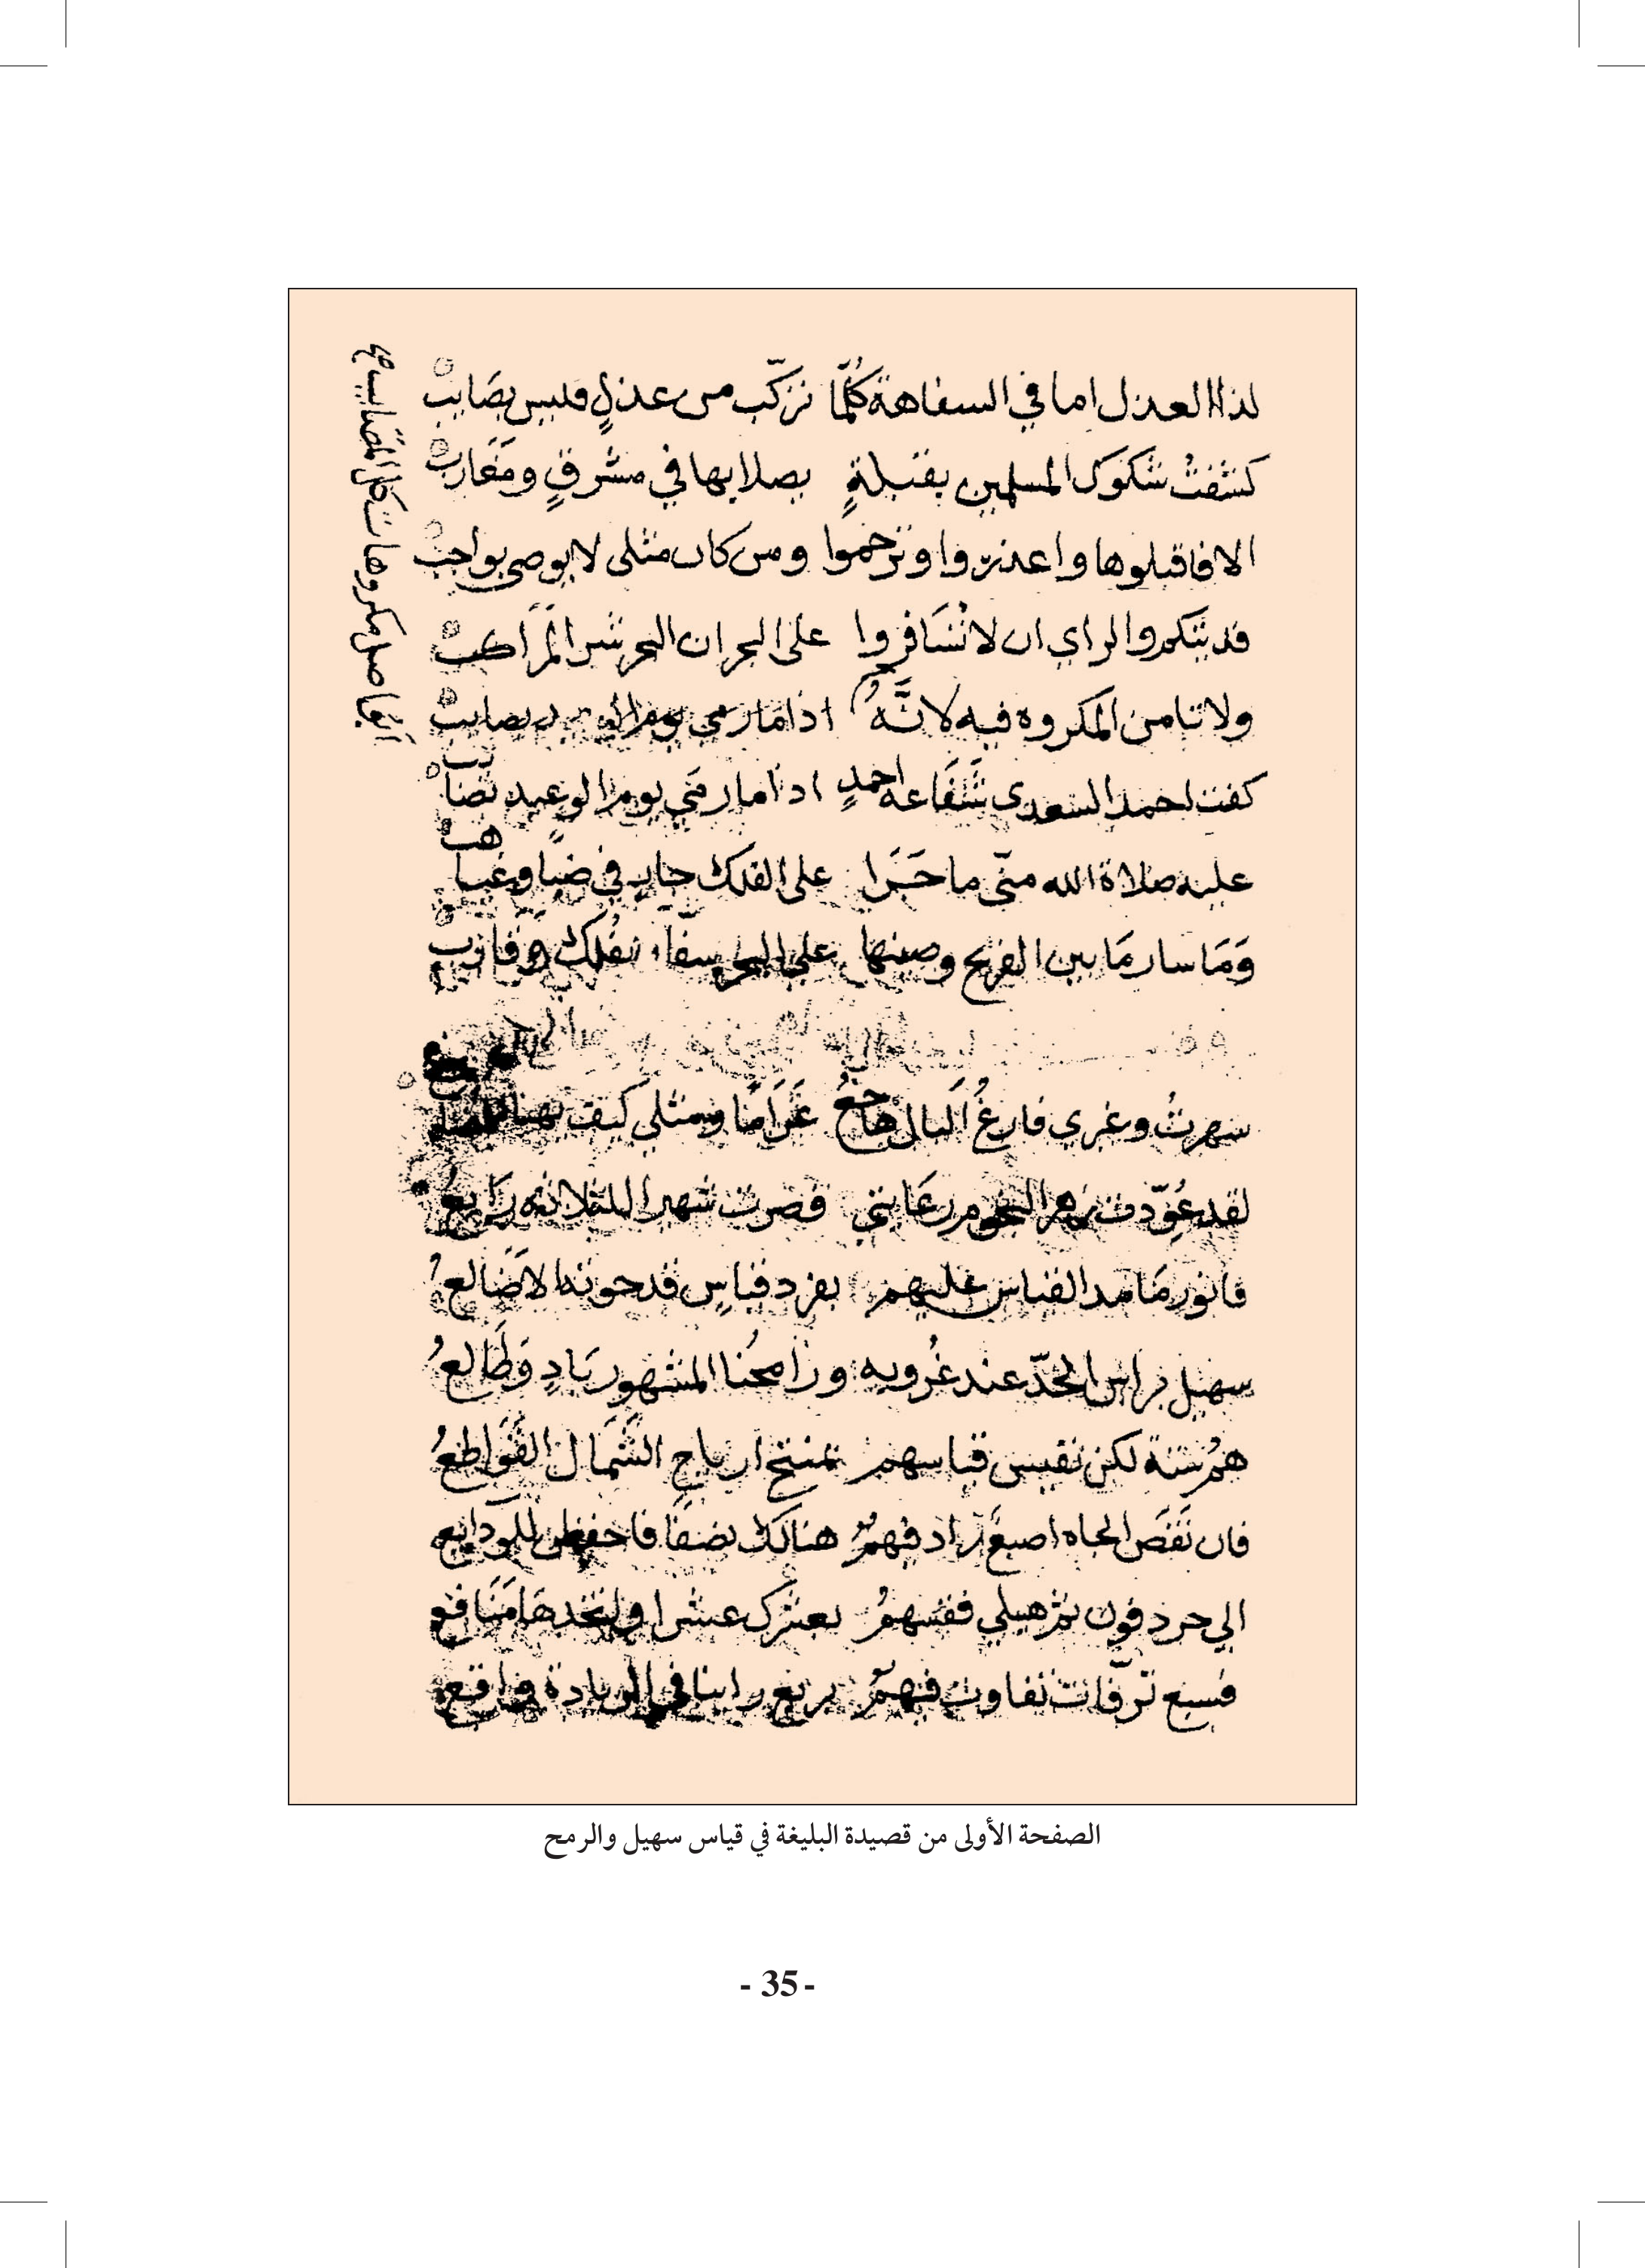 لذا العدل اما في السفاهة كلما تركب من عذلٍ فليس بصايب
كشفت شكوك المسلمين بقبلةٍ بصلابها في مشرقٍ ومغارب
الا فاقبلوها واعذروا وترحموا ومن كان مثلي لا يوصى بواجب
قد تنكروا الراي ان لا تسافروا على البحر ان البحر شر المراكب
ولا تامن المكروه فيه لانه اذا ما رمي يوم بصايب
كفت احمد السعدي شفاعة احمدٍ اذا ما رمي يوم الوعيد نصايب
عليه صلاة الله مني ما جرا على الفلك جارٍ في ضيا وغياهب
وما سار ما بين الفرنج وصينها على البحر سفار بفلك وقارب
سهرتُ وغيري فارغُ البال هاجعُ غراما ومثلي كيف
لقد عُوّدت زهر النجوم رعايتي فصرت شهيرا للثلاثة رابعُ
فانور ما مد القياس عليهم بفرد قياسٍ قد حوته الاضالعُ
سهيل براس الحدّ عند غُروبه ورامحُنا المشهور بادٍ وطالعُ
همُ ستة لكن نقيس قياسهم بمنتخ ارياح الشمال القواطعُ
فان نقص الجاه اصبع زاد فيهم هناك نصفا فاحفظن للودايع
الى جردفون ثم هيلي فقسهمُ بعشرك عشرا ولتجدها منافع
فسبع ترفات تفاوت فيهم بربع راينا في الزيادة واقع
مكروهات كل المصايب صح
الصفحة الأولى من قصيدة البليغة في قياس سهيل والرمح
- 35 -